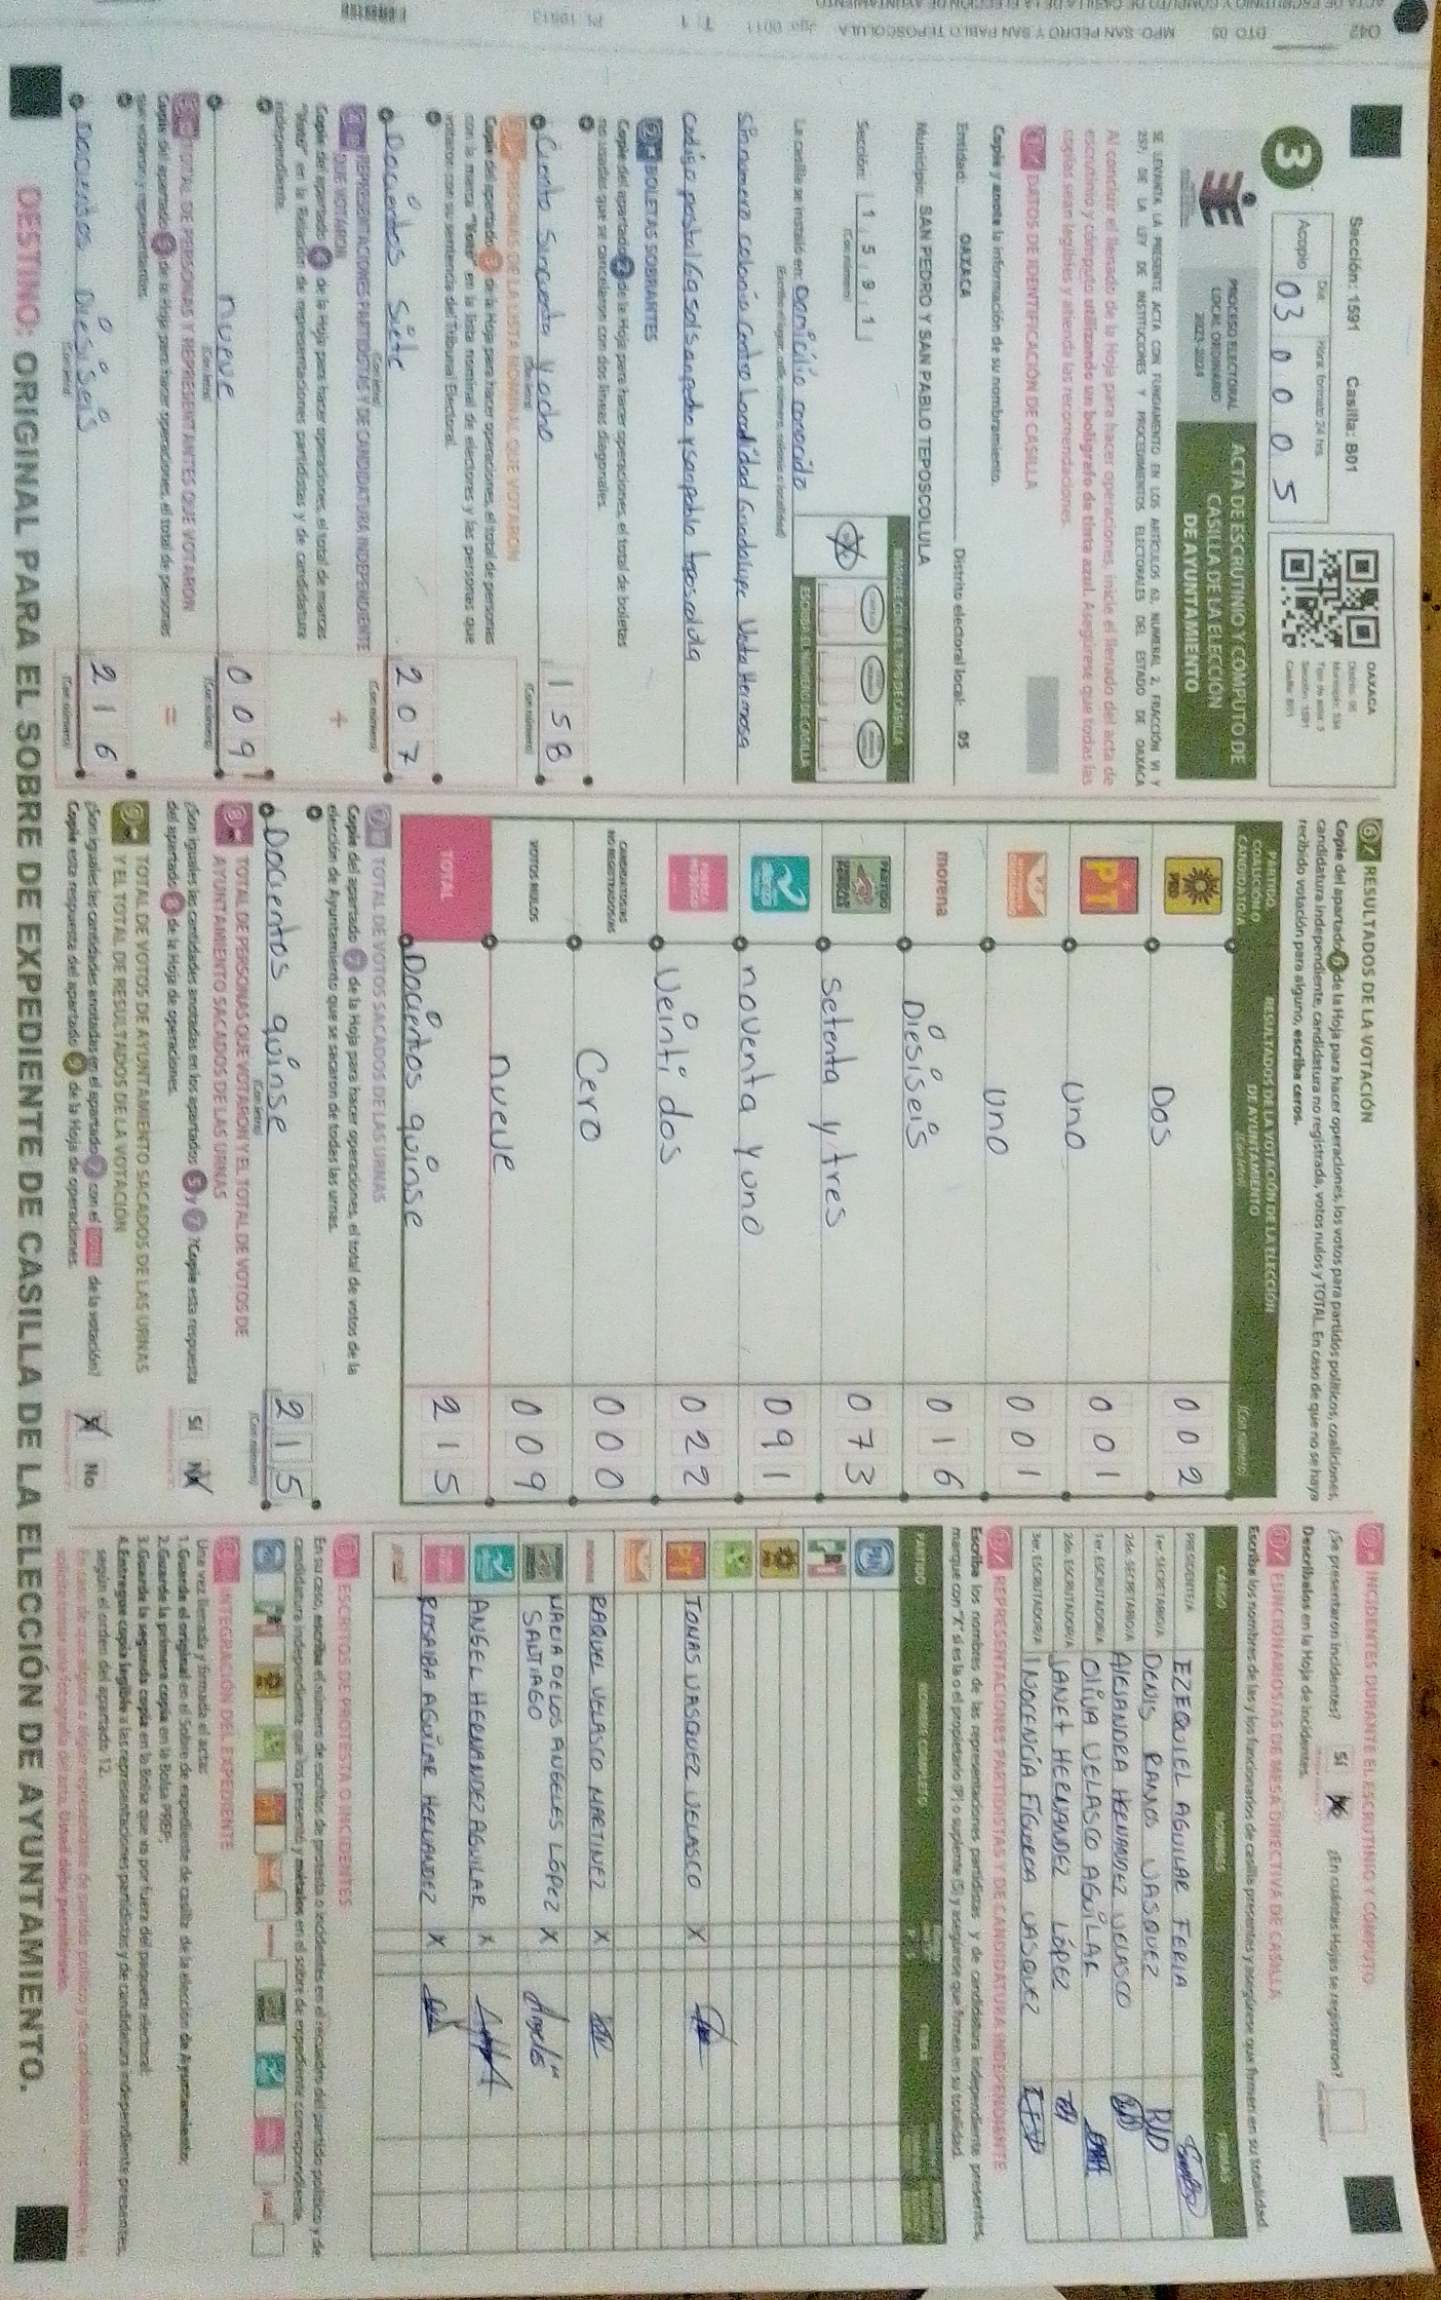 042 DTO 05 MPO. SAN PEDRO Y SAN PABLO TEPOSCOLULA
Sección: 1591 Casilla: B01
3
Día: Hora: formato 24 hrs.
Acopio 03 00 05
OAXACA
PROCESO ELECTORAL
LOCAL ORDINARIO
2023-2024
ACTA DE ESCRUTINIO Y CÓMPUTO DE
CASILLA DE LA ELECCIÓN
DE AYUNTAMIENTO
SE LEVANTA LA PRESENTE ACTA CON FUNDAMENTO EN LOS ARTÍCULOS 62, NUMERAL 2, FRACCIÓN VI Y
257, DE LA LEY DE INSTITUCIONES Y PROCEDIMIENTOS ELECTORALES DEL ESTADO DE OAXACA
Al concluir el llenado de la Hoja para hacer operaciones, inicie el llenado del acta de
escrutinio y cómputo utilizando un bolígrafo de tinta azul. Asegúrese que todas las
copias sean legibles y atienda las recomendaciones.
DATOS DE IDENTIFICACIÓN DE CASILLA
Copie y anote la información de su nombramiento.
Entidad: OAXACA Distrito electoral local: 05
Municipio: SAN PEDRO Y SAN PABLO TEPOSCOLULA
Sección: 1 5 9 1
(Con número)
ESCRIBA EL NÚMERO DE CASILLA
La casilla se instaló en: Domicilio conocido
Sin numero colonia Centro Localidad Guadalupe Vista Hermosa
Codigo postal
2 BOLETAS SOBRANTES
Copie del apartado 2 de la Hoja para hacer operaciones, el total de boletas
no usadas que se cancelaron con dos líneas diagonales.
Ciento Sincuenta y ocho 158
PERSONAS DE LA LISTA NOMINAL QUE VOTARON
Copie del apartado 3 de la Hoja para hacer operaciones, el total de personas
con la marca "Votó" en la lista nominal de electores y las personas que
votaron con su sentencia del Tribunal Electoral.
Docientos Siete 207
4 REPRESENTACIONES PARTIDISTAS Y DE CANDIDATURA INDEPENDIENTE
QUE VOTARON
Copie del apartado 4 de la Hoja para hacer operaciones, el total de marcas
"Votó" en la Relación de representaciones partidistas y de candidatura
independiente.
nueve 009
5 TOTAL DE PERSONAS Y REPRESENTANTES QUE VOTARON
Copie del apartado 5 de la Hoja para hacer operaciones, el total de personas
que votaron y representantes.
Docientos Diesiseis 216
6 RESULTADOS DE LA VOTACIÓN
Copie del apartado 6 de la Hoja para hacer operaciones, los votos para partidos políticos, coaliciones,
candidatura independiente, candidatura no registrada, votos nulos y TOTAL. En caso de que no se haya
recibido votación para alguno, escriba ceros.
PARTIDO,
COALICIÓN O
CANDIDATO/A
RESULTADOS DE LA VOTACIÓN DE LA ELECCIÓN
DE AYUNTAMIENTO
PRD Dos 002
PT Uno 001
Uno 001
morena Diesiseis 016
Setenta y tres 073
noventa y uno 091
Veinti dos 022
Cero 000
VOTOS NULOS nueve 009
TOTAL Docientos quinse 215
7 TOTAL DE VOTOS SACADOS DE LAS URNAS
Copie del apartado 7 de la Hoja para hacer operaciones, el total de votos de la
elección de Ayuntamiento que se sacaron de todas las urnas.
Docientos quinse 215
8 TOTAL DE PERSONAS QUE VOTARON Y EL TOTAL DE VOTOS DE
AYUNTAMIENTO SACADOS DE LAS URNAS
¿Son iguales las cantidades anotadas en los apartados 5 y 7? Copie esta respuesta
del apartado 8 de la Hoja de operaciones.
Sí No
9 TOTAL DE VOTOS DE AYUNTAMIENTO SACADOS DE LAS URNAS
Y EL TOTAL DE RESULTADOS DE LA VOTACIÓN
¿Son iguales las cantidades anotadas en el apartado 7 con el TOTAL de la votación?
Copie esta respuesta del apartado 9 de la Hoja de operaciones.
Sí No
INCIDENTES DURANTE EL ESCRUTINIO Y CÓMPUTO
¿Se presentaron incidentes? Sí No ¿En cuántas Hojas se registraron?
Descríbalos en la Hoja de incidentes.
FUNCIONARIOS/AS DE MESA DIRECTIVA DE CASILLA
Escriba los nombres de las y los funcionarios de casilla presentes y asegúrese que firmen en su totalidad.
CARGO NOMBRES FIRMAS
PRESIDENTE/A EZEQUIEL AGUILAR FERIA
1er. SECRETARIO/A DENIS RAMOS VASQUEZ
2do. SECRETARIO/A ALEJANDRA HERNANDEZ VELASCO
1er. ESCRUTADOR/A OLIVIA VELASCO AGUILAR
2do. ESCRUTADOR/A JANET HERNANDEZ LÓPEZ
3er. ESCRUTADOR/A INOCENCIA FIGUEROA VASQUEZ
REPRESENTACIONES PARTIDISTAS Y DE CANDIDATURA INDEPENDIENTE
Escriba los nombres de las representaciones partidistas y de candidatura independiente presentes,
marque con "X" si es la o el propietario (P) o suplente (S) y asegúrese que firmen en su totalidad.
PARTIDO NOMBRE COMPLETO FIRMAS
PAN
PT JONAS VASQUEZ VELASCO X
morena RAQUEL VELASCO MARTINEZ X
MARIA DE LOS ANGELES LÓPEZ SANTIAGO X
ANGEL HERNANDEZ AGUILAR X
ROSALBA AGUILAR HERNANDEZ X
ESCRITOS DE PROTESTA O INCIDENTES
En su caso, escriba el número de escritos de protesta o incidentes en el recuadro del partido político y de
candidatura independiente que los presentó y métalos en el sobre de expediente correspondiente.
INTEGRACIÓN DEL EXPEDIENTE
Una vez llenada y firmada el acta:
1. Guarde el original en el Sobre de expediente de casilla de la elección de Ayuntamiento;
2. Guarde la primera copia en la Bolsa PREP;
3. Guarde la segunda copia en la Bolsa que va por fuera del paquete electoral;
4. Entregue copia legible a las representaciones partidistas y de candidatura independiente presentes,
según el orden del apartado 12.
DESTINO: ORIGINAL PARA EL SOBRE DE EXPEDIENTE DE CASILLA DE LA ELECCIÓN DE AYUNTAMIENTO.